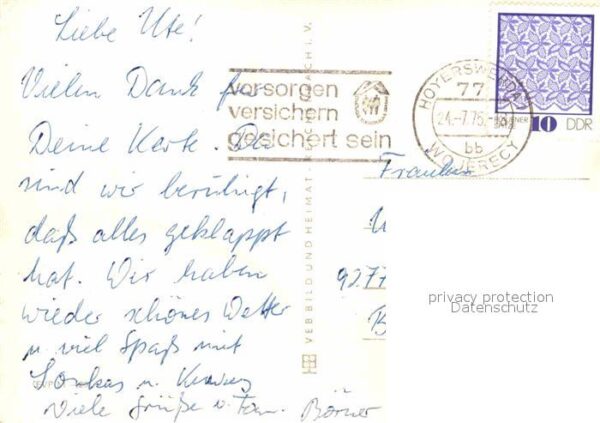 Liebe Ute!
Vielen Dank für
Deine Karte. Da
sind wir beruhigt,
daß alles geklappt
hat. Wir haben
wieder schönes Wetter
u viel Spaß mit
u.
Viele Grüße v. Fam. Börner
vorsorgen
versichern
gesichert sein
HOYERSWERDA
77
24.-7.75.
bb
WOJERECY
10 DDR
VEB BILD UND HEIMAT REICHENBACH I. V.
9277
privacy protection
Datenschutz